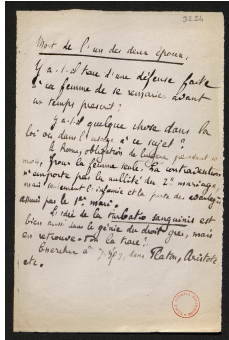 3254
Mort de l'un des deux époux.
Y a-t-il trace d'une défense faite
à la femme de se remarier avant
un temps prescrit?
Y a-t-il quelque chose dans la
loi ou dans l'usage à ce sujet?
À Rome, obligation de pendant
mois, pour la femme seule. La contravention
n'emporte pas la nullité du 2e mariage,
mais seulement l'infamie et la perte des avantages
assurés par le 1er mari.
L'idée de la turbatio sanguinis est
bien aussi dans le génie du droit grec, mais
en retrouve-t-on la trace?
Chercher à dans Platon, Aristote
etc.